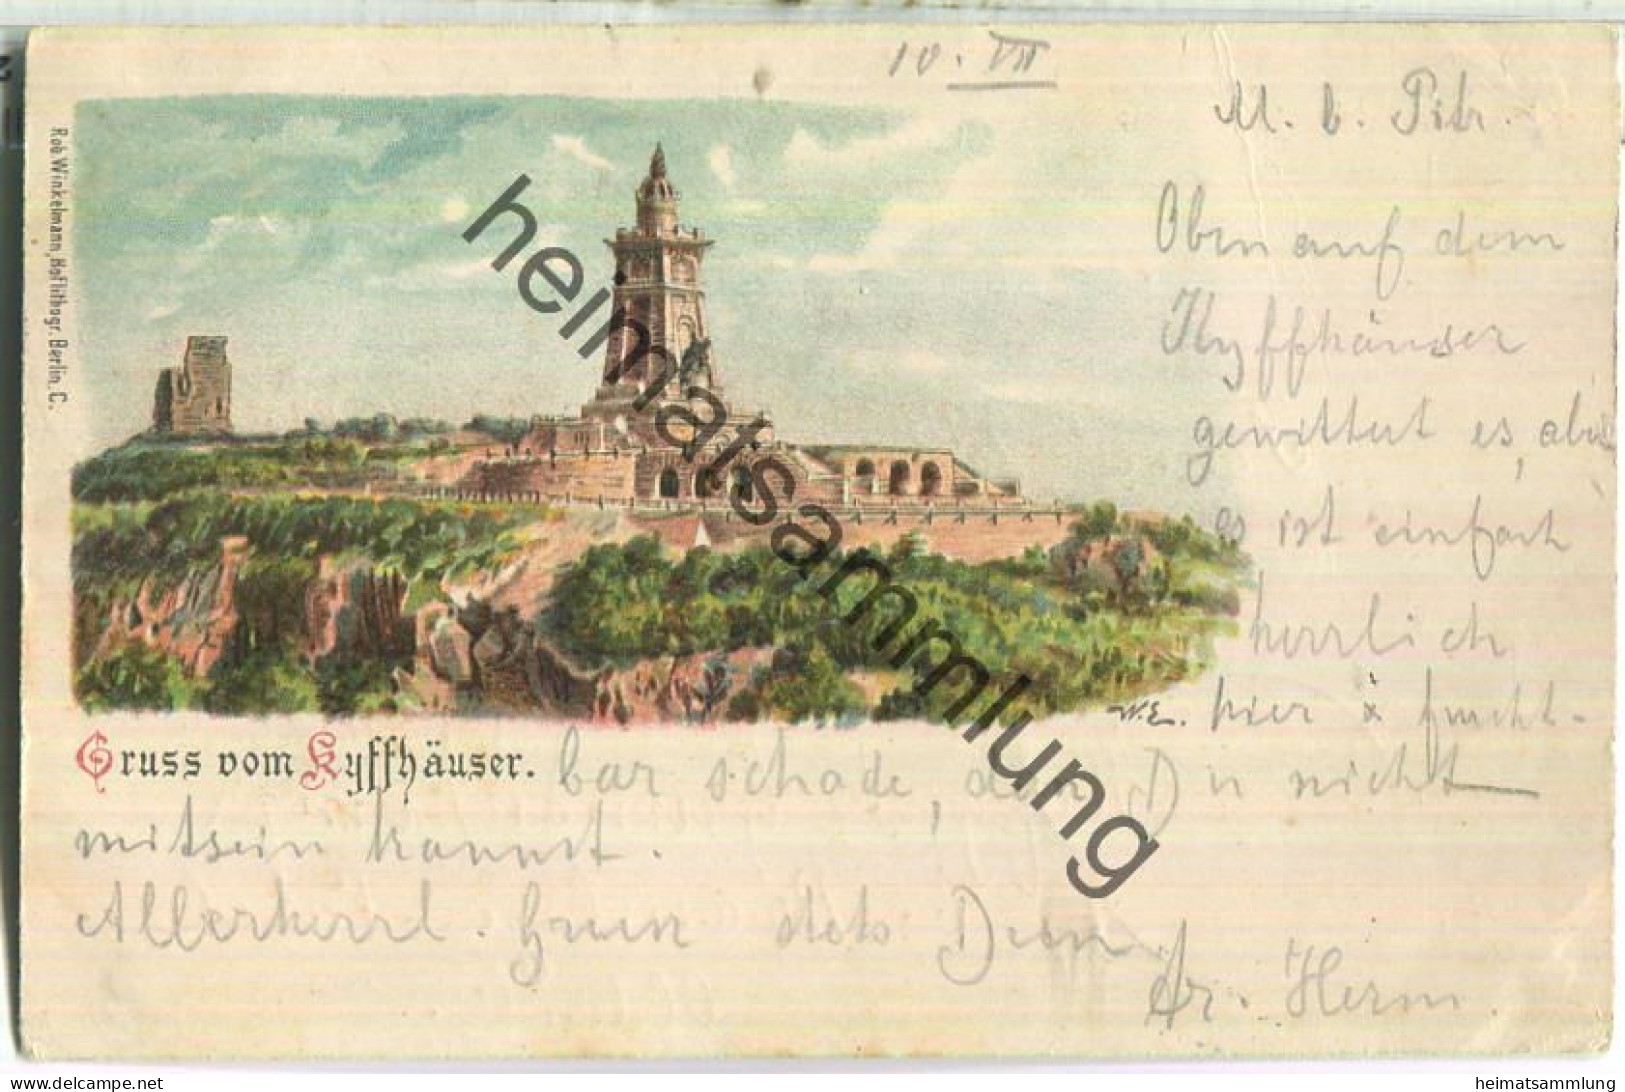 10. VII
M. l. Petr.
Oben auf dem
Kyffhäuser
gewittert es, aber
es ist einfach
herrlich
hier & furcht-
bar schade, dass Du nicht
mitsein kannst.
Allerherzl.
stets Dein
Fr. Herm
Gruss vom Kyffhäuser.
W.E.
Rob. Winkelmann, Hoflithogr. Berlin. C.
heimatsammlung
www.delcampe.net
heimatsammlung